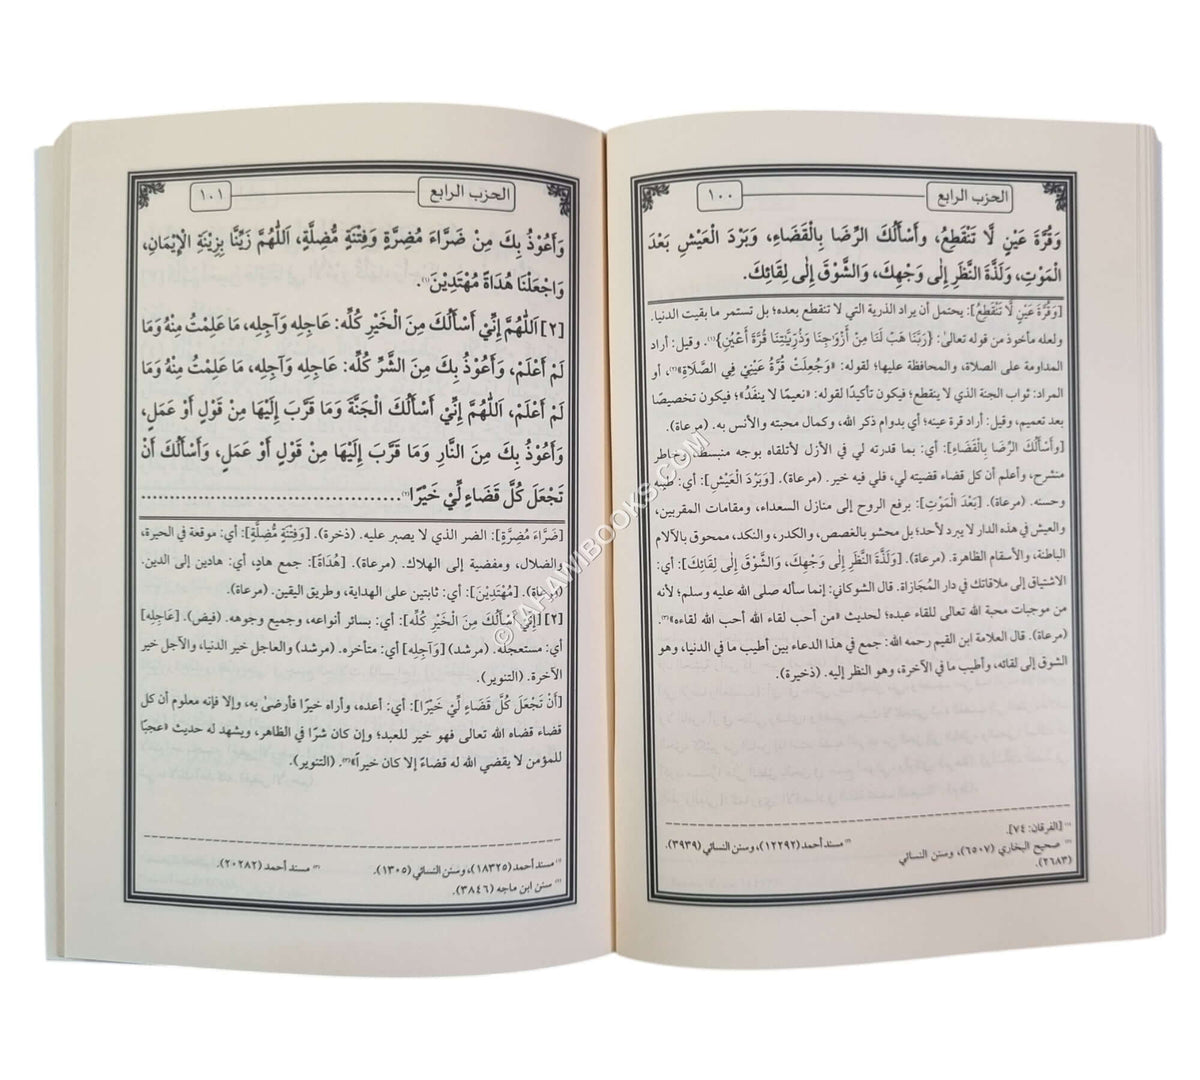 الحزب الرابع
١٠٠
وَقُرَّةَ عَيْنٍ لَّا تَنْقَطِعُ، وَأَسْأَلُكَ الرِّضَا بِالْقَضَاءِ، وَبَرْدَ الْعَيْشِ بَعْدَ
الْمَوْتِ، وَلَذَّةَ النَّظَرِ إِلَى وَجْهِكَ، وَالشَّوْقَ إِلَى لِقَائِكَ.
[وَقُرَّةَ عَيْنٍ لَّا تَنْقَطِعُ]: يحتمل أن يراد الذرية التي لا تنقطع بعده؛ بل تستمر ما بقيت الدنيا.
ولعله مأخوذ من قوله تعالى: {رَبَّنَا هَبْ لَنَا مِنْ أَزْوَاجِنَا وَذُرِّيَّتِنَا قُرَّةَ أَعْيُنٍ}(١). وقيل: أراد
المداومة على الصلاة، والمحافظة عليها؛ لقوله: «وَجُعِلَتْ قُرَّةُ عَيْنِيْ فِي الصَّلَاةِ»(٢)، أو
المراد: ثواب الجنة الذي لا ينقطع؛ فيكون تأكيدًا لقوله: «نعيمًا لا ينفَدُ»؛ فيكون تخصيصًا
بعد تعميم، وقيل: أراد قرة عينه؛ أي بدوام ذكر الله، وكمال محبته والأنس به. (مرعاة).
[وأَسْأَلُكَ الرِّضَا بِالْقَضَاءِ]: أي: بما قدرته لي في الأزل لأتلقاه بوجه منبسط، وخاطر
منشرح، وأعلم أن كل قضاء قضيته لي، فلي فيه خير. (مرعاة). [وَبَرْدَ الْعَيْشِ]: أي: طيبه
وحسنه. (مرعاة). [بَعْدَ الْمَوْتِ]: برفع الروح إلى منازل السعداء، ومقامات المقربين،
والعيش في هذه الدار لا يبرد لأحد؛ بل محشو بالغصص، والكدر، والنكد، ممحوق بالآلام
الباطنة، والأسقام الظاهرة. (مرعاة). [وَلَذَّةَ النَّظَرِ إِلَى وَجْهِكَ، وَالشَّوْقَ إِلَى لِقَائِكَ]: أي:
الاشتياق إلى ملاقاتك في دار المُجَازاة. قال الشوكاني: إنما سأله صلى الله عليه وسلم؛ لأنه
من موجبات محبة الله تعالى للقاء عبده؛ لحديث «من أحب لقاء الله أحب الله لقاءه»(٣).
(مرعاة). قال العلامة ابن القيم رحمه الله: جمع في هذا الدعاء بين أطيب ما في الدنيا، وهو
الشوق إلى لقائه، وأطيب ما في الآخرة، وهو النظر إليه. (ذخيرة).
(١) [الفرقان: ٧٤].
(٢) مسند أحمد (١٢٢٩٢)، وسنن النسائي (٣٩٣٩).
(٣) صحيح البخاري (٦٥٠٧)، وسنن النسائي
(٢٦٨٣).
الحزب الرابع
١٠١
وَأَعُوْذُ بِكَ مِنْ ضَرَّاءَ مُضِرَّةٍ وَفِتْنَةٍ مُّضِلَّةٍ، اَللّٰهُمَّ زَيِّنَّا بِزِيْنَةِ الْإِيْمَانِ،
وَاجْعَلْنَا هُدَاةً مُهْتَدِيْنَ(١).
[٢] اَللّٰهُمَّ إِنِّيْ أَسْأَلُكَ مِنَ الْخَيْرِ كُلِّه: عَاجِلِه وَآجِلِه، مَا عَلِمْتُ مِنْهُ وَمَا
لَمْ أَعْلَمْ، وَأَعُوْذُ بِكَ مِنَ الشَّرِّ كُلِّه: عَاجِلِه وَآجِلِه، مَا عَلِمْتُ مِنْهُ وَمَا
لَمْ أَعْلَمْ، اَللّٰهُمَّ إِنِّيْ أَسْأَلُكَ الْجَنَّةَ وَمَا قَرَّبَ إِلَيْهَا مِنْ قَوْلٍ أَوْ عَمَلٍ،
وَأَعُوْذُ بِكَ مِنَ النَّارِ وَمَا قَرَّبَ إِلَيْهَا مِنْ قَوْلٍ أَوْ عَمَلٍ، وَأَسْأَلُكَ أَنْ
تَجْعَلَ كُلَّ قَضَاءٍ لِّيْ خَيْرًا(٢)........................................
[ضَرَّاءَ مُضِرَّةٍ]: الضر الذي لا يصبر عليه. (ذخرة). [وَفِتْنَةٍ مُّضِلَّةٍ]: أي: موقعة في الحيرة،
والضلال، ومفضية إلى الهلاك. (مرعاة). [هُدَاةً]: جمع هادٍ، أي: هادين إلى الدين.
(مرعاة). [مُهْتَدِيْنَ]: أي: ثابتين على الهداية، وطريق اليقين. (مرعاة).
[٢] [إِنِّيْ أَسْأَلُكَ مِنَ الْخَيْرِ كُلِّه]: أي: بسائر أنواعه، وجميع وجوهه. (فيض). [عَاجِلِه]
أي: مستعجله. (مرشد) [وَآجِلِه] أي: متأخره. (مرشد) والعاجل خير الدنيا، والآجل خير
الآخرة. (التنوير).
[أَنْ تَجْعَلَ كُلَّ قَضَاءٍ لِّيْ خَيْرًا]: أي: أعده، وأراه خيرًا فأرضى به، وإلا فإنه معلوم أن كل
قضاء قضاه الله تعالى فهو خير للعبد؛ وإن كان شرًا في الظاهر، ويشهد له حديث «عجبًا
للمؤمن لا يقضي الله له قضاءً إلا كان خيراً»(٣). (التنوير).
(١) مسند أحمد (١٨٣٢٥)، وسنن النسائي (١٣٠٥).
(٢) سنن ابن ماجه (٣٨٤٦).
(٣) مسند أحمد (٢٠٢٨٢).
© TAHAWIBOOKS.COM